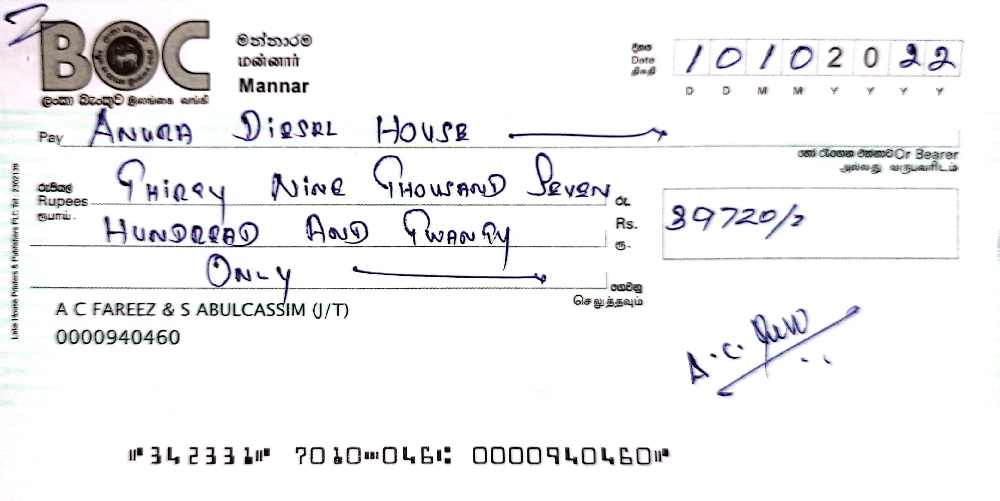 BOC
ලංකා බැංකුව இலங்கை வங்கி
මන්නාරම
மன்னார்
Mannar
දිනය
Date
திகதி
10102022
D D M M Y Y Y Y
Pay ANURA DIESEL HOUSE
හෝ රැගෙන එන්නාට Or Bearer
அல்லது வருபவரிடம்
රුපියල්
Rupees
ரூபாய்
THIRTY NINE THOUSAND SEVEN
HUNDREAD AND TWANTY
ONLY
රු.
Rs.
ரூ.
39720/=
ගෙවනු
செலுத்தவும்
A C FAREEZ & S ABULCASSIM (J/T)
0000940460
Lake House Printers & Publishers PLC Tel : 2102136
⑈342331⑈ 7010⑉046⑆ 0000940460⑈